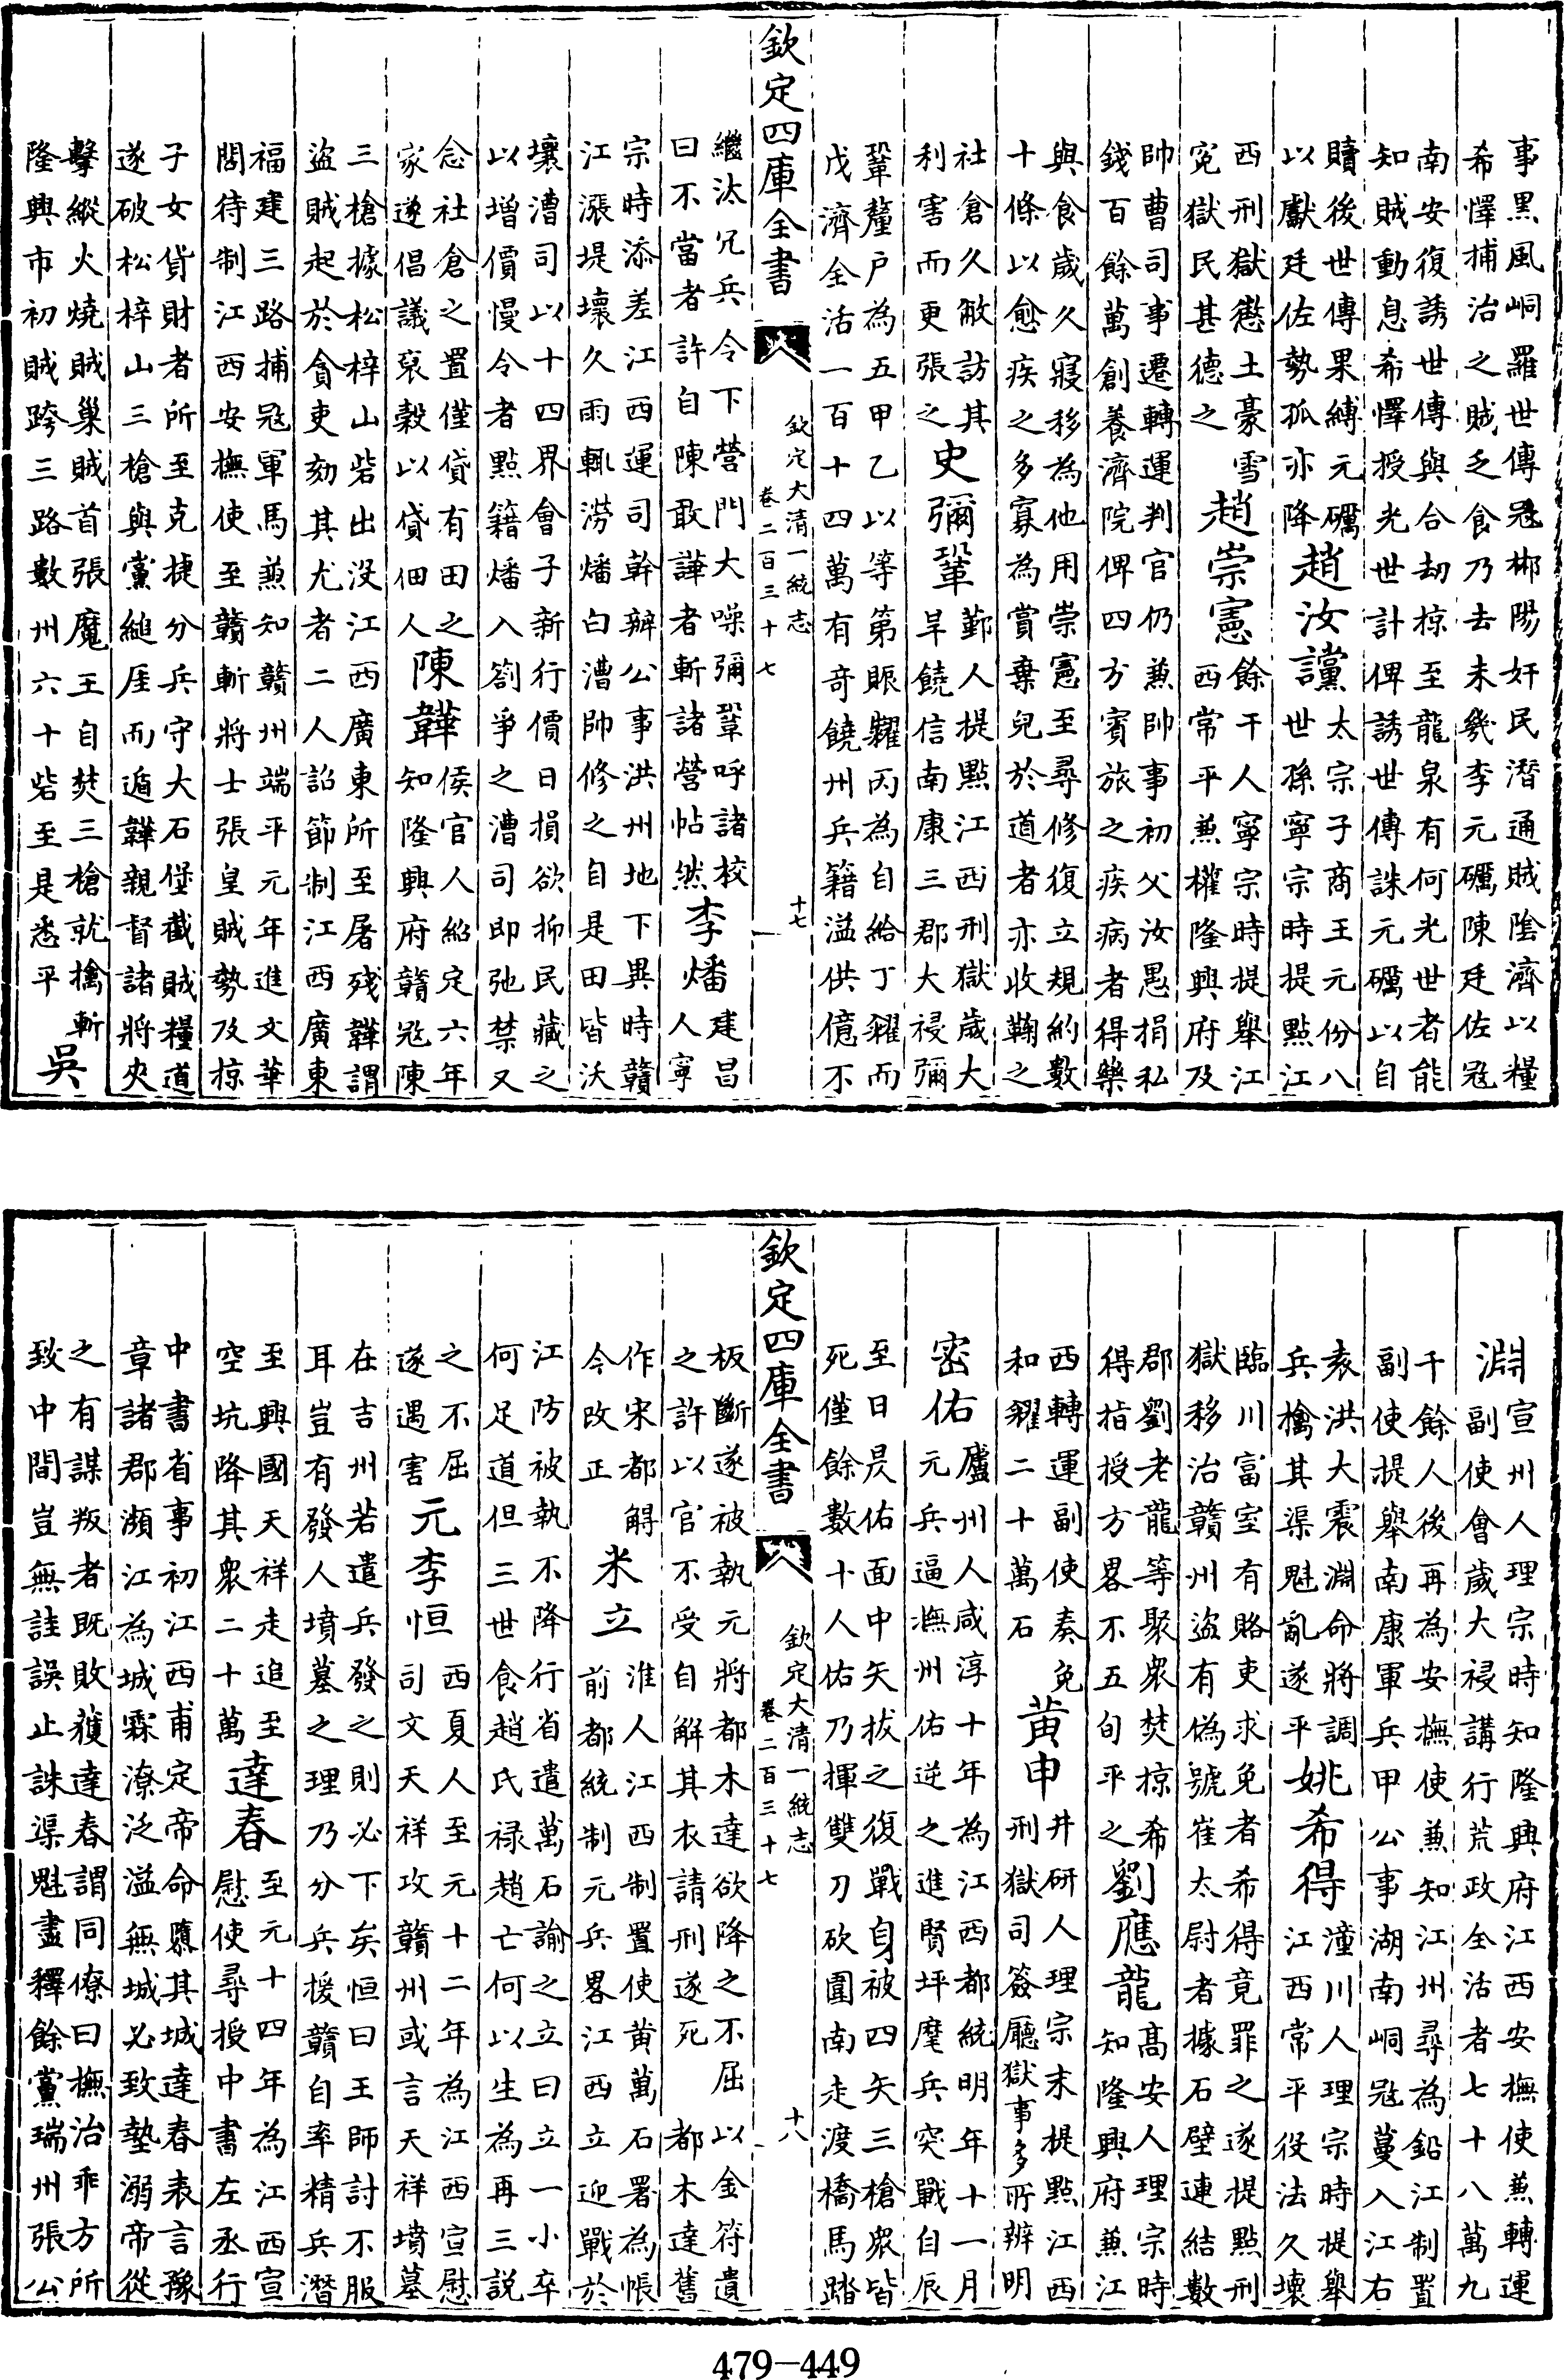 事黑風峒羅世傳冦郴陽奸民潛通賊陰濟以糧
希懌捕治之賊乏食乃去未幾李元礪陳廷佐冦
南安復誘世傳與合刼掠至龍泉有何光世者能
知賊動息希懌授光世計俾誘世傳誅元礪以自
贖後世傳果縛元礪
以獻廷佐勢孤亦降
趙汝讜
太宗子商王元份八
世孫寧宗時提點江
西刑獄懲土豪雪
冤獄民甚德之
趙崇憲
餘干人寧宗時提舉江
西常平兼權隆興府及
帥曹司事遷轉運判官仍兼帥事初父汝愚捐私
錢百餘萬創養濟院俾四方賓旅之疾病者得藥
與食歲久寢移為他用崇憲至尋修復立規約數
十條以愈疾之多寡為賞棄兒於道者亦收鞠之
社倉久敝訪其
利害而更張之
史彌鞏
鄞人提點江西刑獄歲大
旱饒信南康三郡大祲彌
鞏釐户為五甲乙以等第賑糶丙為自給丁糴而
戊濟全活一百十四萬有奇饒州兵籍溢供億不
欽定四庫全書
欽定大清一統志
卷二百三十七
十七
繼汰冗兵令下營門大噪彌鞏呼諸校
曰不當者許自陳敢譁者斬諸營帖然
李燔
建昌
人寧
宗時添差江西運司幹辦公事洪州地下異時贛
江漲堤壞久雨輒澇燔白漕帥修之自是田皆沃
壤漕司以十四界會子新行價日損欲抑民藏之
以增價慢令者點籍燔入劄爭之漕司即弛禁又
念社倉之置僅貸有田之
家遂倡議裒穀以貸佃人
陳韡
侯官人紹定六年
知隆興府贛冦陳
三槍據松梓山砦出没江西廣東所至屠殘韡謂
盜賊起於貪吏劾其尤者二人詔節制江西廣東
福建三路捕冦軍馬兼知贛州端平元年進文華
閣待制江西安撫使至贛斬將士張皇賊勢及掠
子女貨財者所至克捷分兵守大石堡截賊糧道
遂破松梓山三槍與黨縋厓而遁韡親督諸將夾
擊縱火燒賊巢賊首張魔王自焚三槍就擒斬
隆興市初賊跨三路數州六十砦至是悉平
吳
淵
宣州人理宗時知隆興府江西安撫使兼轉運
副使會歲大祲講行荒政全活者七十八萬九
千餘人後再為安撫使兼知江州尋為鉛江制置
副使提舉南康軍兵甲公事湖南峒冦蔓入江右
袁洪大震淵命將調
兵擒其渠魁亂遂平
姚希得
潼川人理宗時提舉
江西常平役法久壞
臨川富室有賂吏求免者希得竟罪之遂提點刑
獄移治贛州盜有偽號崔太尉者據石壁連結數
郡劉老龍等聚衆焚掠希
得指授方畧不五旬平之
劉應龍
高安人理宗時
知隆興府兼江
西轉運副使奏免
和糴二十萬石
黄申
井研人理宗末提點江西
刑獄司簽廳獄事多所辨明
密佑
廬州人咸淳十年為江西都統明年十一月
元兵逼撫州佑逆之進賢坪麾兵突戰自辰
至日昃佑面中矢拔之復戰身被四矢三槍衆皆
死僅餘數十人佑乃揮雙刀砍圍南走渡橋馬踏
欽定四庫全書
欽定大清一統志
卷二百三十七
十八
板斷遂被執元將都木達欲降之不屈以金符遺
之許以官不受自解其衣請刑遂死都木達舊
作宋都䚟
今改正
米立
淮人江西制置使黄萬石署為帳
前都統制元兵畧江西立迎戰於
江防被執不降行省遣萬石諭之立曰立一小卒
何足道但三世食趙氏禄趙亡何以生為再三説
之不屈
遂遇害
元李恒
西夏人至元十二年為江西宣慰
司文天祥攻贛州或言天祥墳墓
在吉州若遣兵發之則必下矣恒曰王師討不服
耳豈有發人墳墓之理乃分兵援贛自率精兵潛
至興國天祥走追至
空坑降其衆二十萬
達春
至元十四年為江西宣
慰使尋授中書左丞行
中書省事初江西甫定帝命隳其城達春表言豫
章諸郡瀕江為城霖潦泛溢無城必致墊溺帝從
之有謀叛者既敗獲達春謂同僚曰撫治乖方所
致中間豈無詿誤止誅渠魁盡釋餘黨瑞州張公
479-449